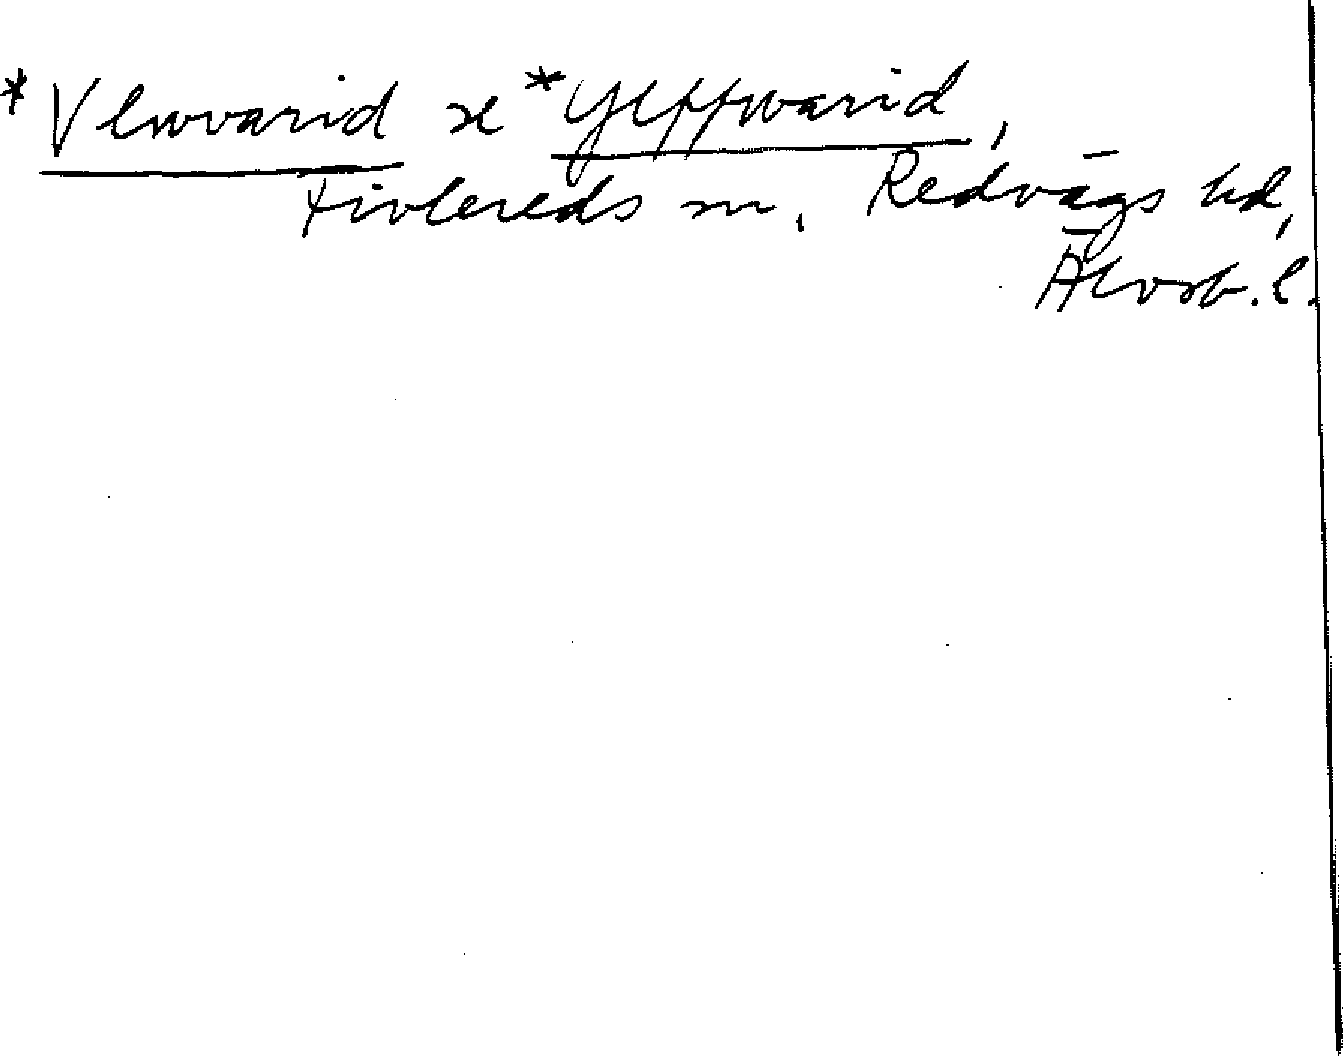 *Vlwvarid se *Ylffwarid,
Fivlereds sn, Redvägs hd,
Älvsb. l.